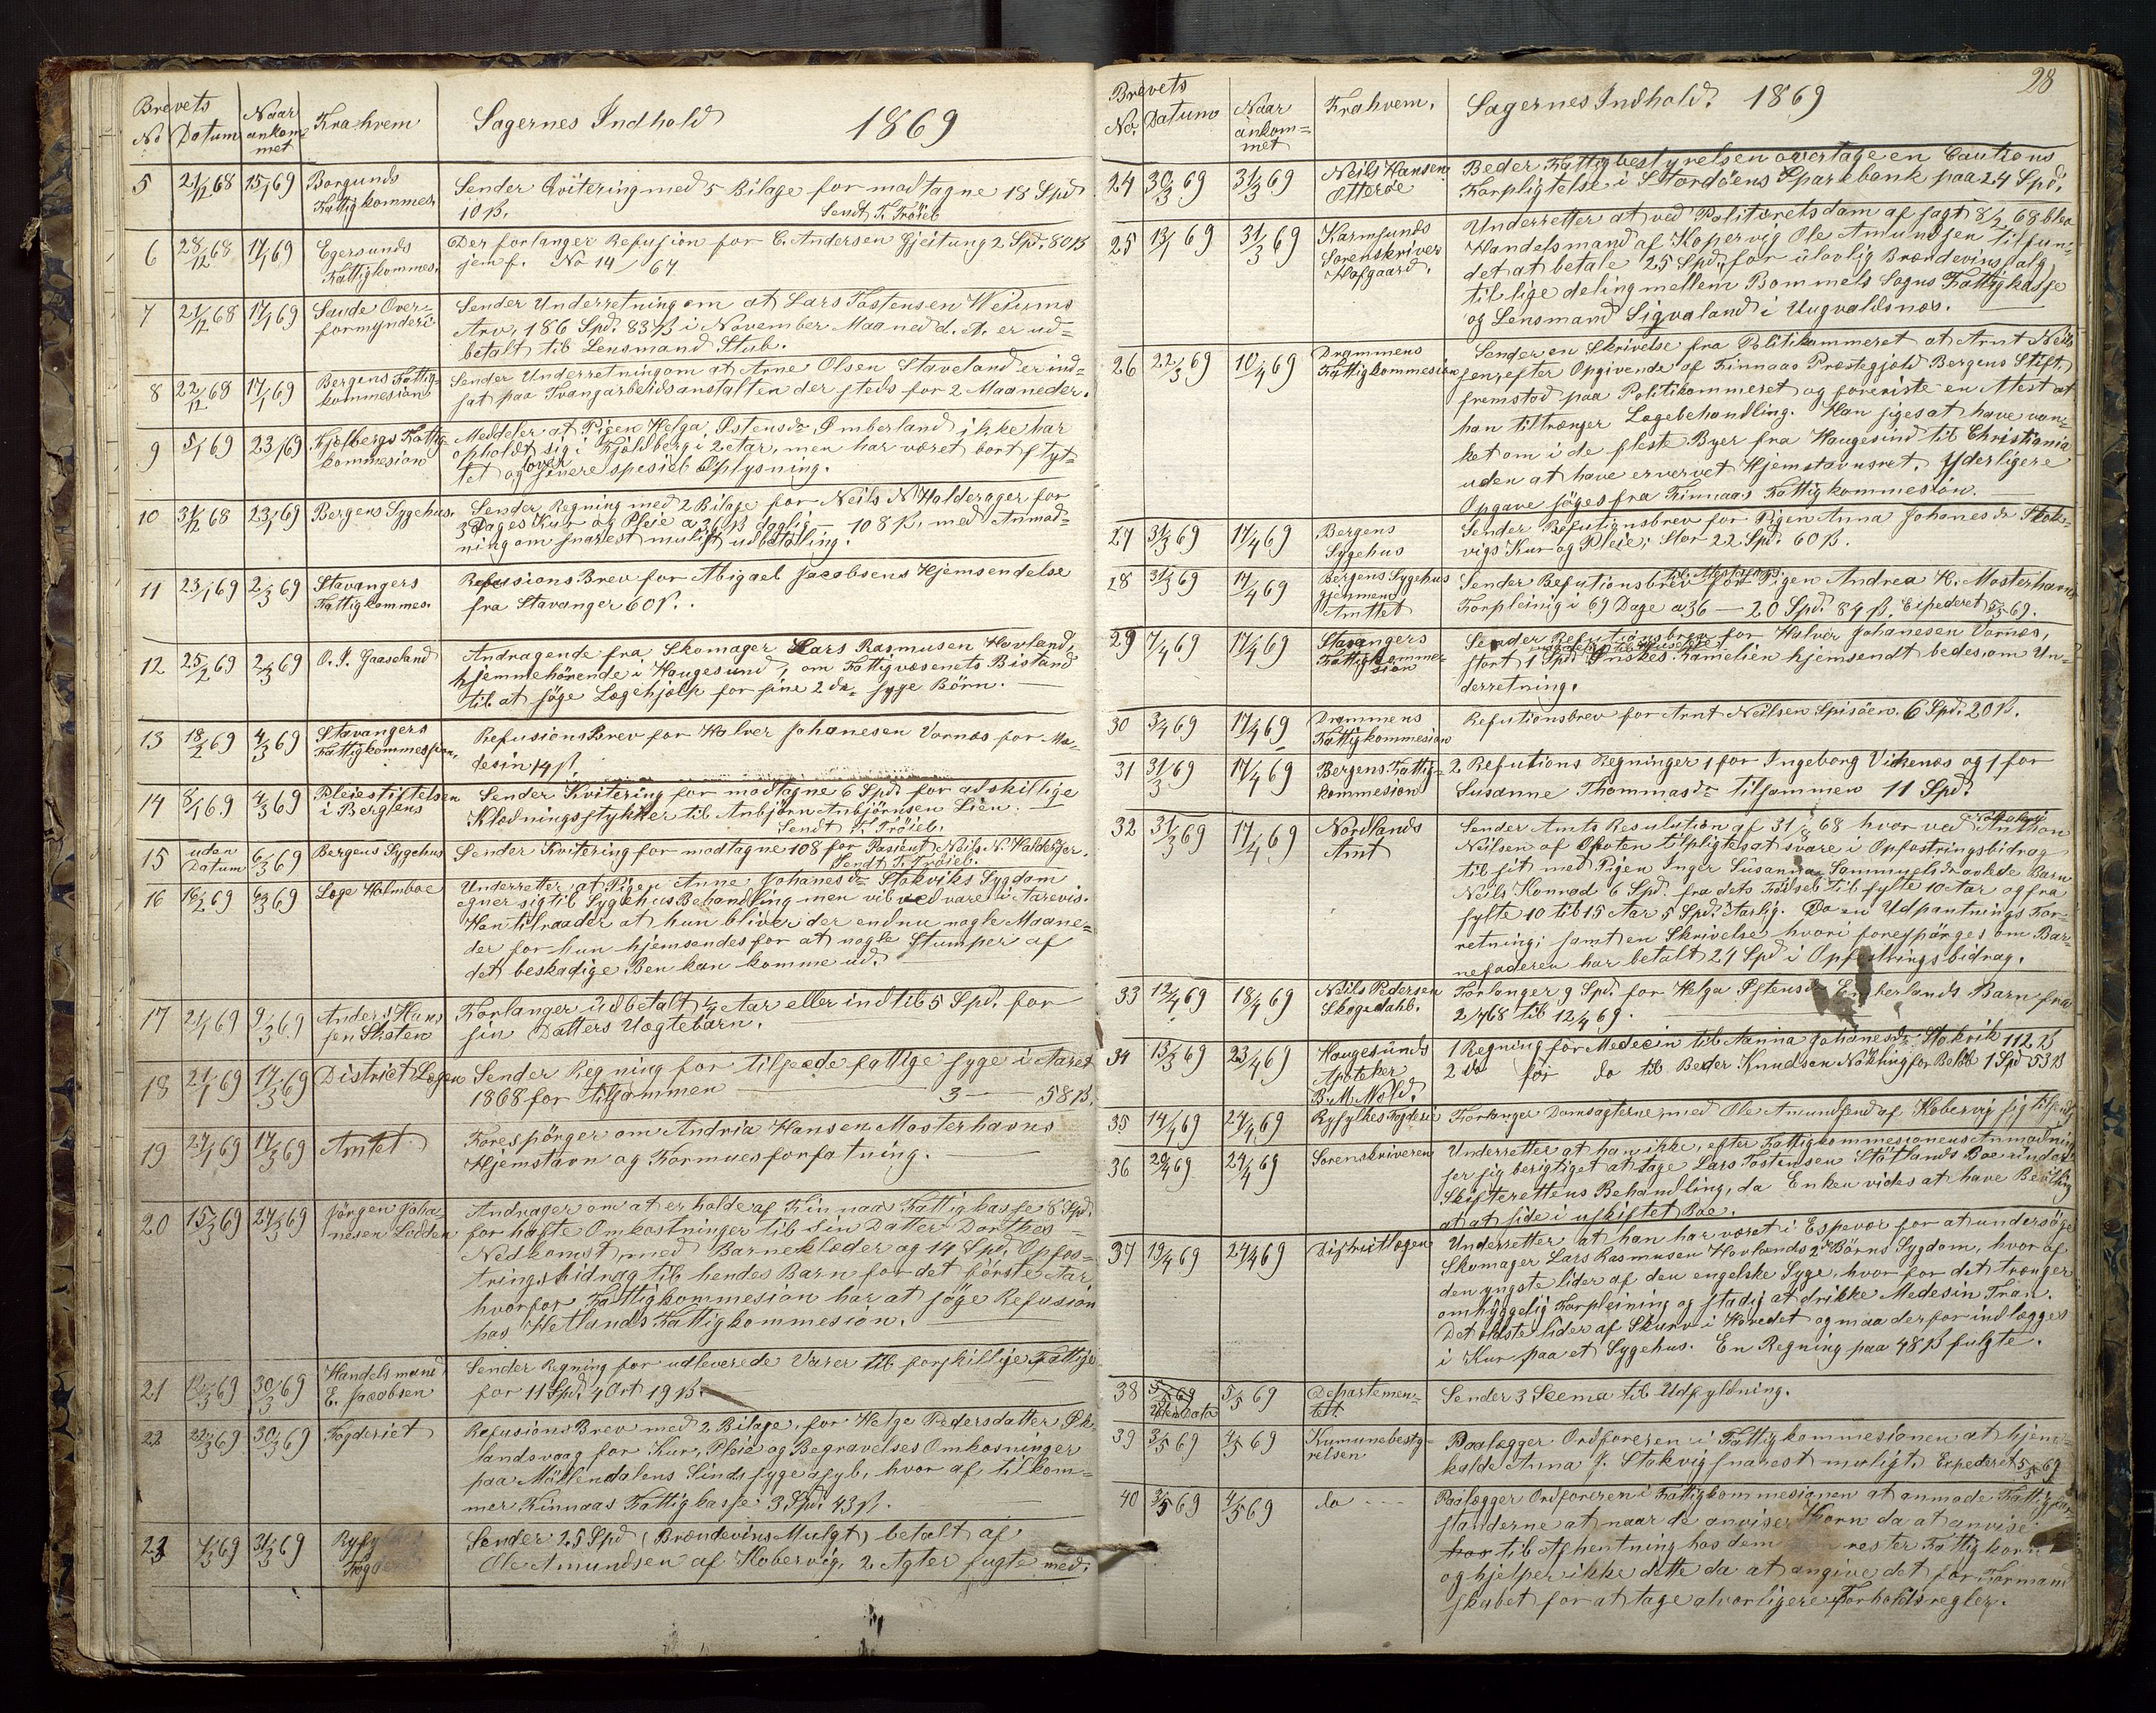 Brevets
No Datum Naar ankommet Frahvem Sagernes Indhold 1869
5 21/12 68 15/1 69 Borgunds Sender Qvitering med 5 Bilage for modtagne 18 Spd
Fattigkommes. 10 ß. Sendt T. Tröieb
6 28/12 68 17/1 69 Egersunds Der forlanger Refusion for C. Andersen Gjeitung 2 Spd. 80 ß
Fattigkommes. jemf. No 14/67
7 21/12 68 17/1 69 Saude Over- Sender Underretning om at Lars Tostensen
formynderi Arv, 186 Spd. 83 ß i November Maaned d. A. er ud-
betalt til Lensmand Stub.
8 22/12 68 17/1 69 Bergens Fattig- Sender Underretning om at Arne Olsen Staveland er ind-
kommesion sat paa Tvangarbeidsanstalten der steds for 2 Maaneder.
9 5/1 69 23/1 69 Kjølbergs Fattig- Meddeler at Pigen Helga Østensdr Imberland ikke har
kommesion opholdt sig i Fjöldberg i 2 Aar, men har været bort flyt-
tet og over senere spesiel Oplysning.
10 31/12 68 23/1 69 Bergens Sygehus Sender Regning med 2 Bilage for Neils N Halderager for
3 Dages Kur og Pleie a 36 ß daglig — 108 ß, med Anmod-
ning om snarest muligt udbetaling.
11 23/1 69 2/3 69 Stavangers Refusions Brev for Abigael Jacobsens Hjemsendelse
Fattigkommes. fra Stavanger 60 ß.
12 25/2 69 2/3 69 O. J. Gaaseland Andragende fra Skomager Lars Rasmusen Hovland,
hjemmehörende i Haugesund, om Fattigvæsenets Bistand
til at söge Lægehjælp for sine 2de syge Börn.
13 18/2 69 4/3 69 Stavangers Refusions Brev for Halver Johanesen Vornæs for Me-
Fattigkommesion. desin 14 ß
14 8/1 69 4/3 69 Pleiestiftelsen Sender Kvitering for modtagne 6 Spd for adskillige
i Bergens Klædningsstykker til Anbjörn Anbjörnsen Lien.
Sendt T. Tröieb.
15 uden Datum 6/3 69 Bergens Sygehus Sender Kvitering for modtagne 108 for Pasient Neils N. Halderager.
Sendt T. Tröieb.
16 16/2 69 6/3 69 Læge Holmboe Underretter at Pigen Anne Johanesdr Stokviks Sygdom
egner sig til Sygehus Behandling men vil ved vare i Aarevis.
Han tilraader at hun bliver der endnu nogle Maane-
der for hun hjemsendes for at nogle Stumper af
det beskadige Ben kan komme ud.
17 21/1 69 9/3 69 Anders Han- Forlanger udbetalt 1/4 Aar eller indtil 5 Spd. for
sen Skoten sin Datters Uægtebarn.
18 21/1 69 17/3 69 District Lægen Sender Regning for tilseede fattige syge i Aaret
1868 for tilsammen 3 — 58 ß.
19 27/1 69 17/3 69 Amtet Forespörger om Andria Hansen Mosterhavns
Hjemstavn og Formuesforfatning.
20 15/3 69 27/3 69 Jörgen Joha- Andrager om at erholde af Finnaas Fattigkasse 8 Spd.
nesen Lodden for hafte Omkostninger til sin Datter Dorthes
Nedkomst med Barneklæder og 14 Spd. Opfos-
tringsbidrag til hendes Barn for det förste Aar,
hvorfor Fattigkommesion har at söge Refusion
hos Hetlands Fattigkommesion.
21 69 30/3 69 Handelsmand Sender Regning for udleverede Varer til forskillige Fattige
E. Jacobsen for 11 Spd. 4 Ort 19 ß.
22 22/3 69 30/3 69 Fogderiet Refusions Brev med 2 Bilage, for Helge Pedersdatter Øk-
landsvaag for Kur, Pleie og Begravelses Omkosninger
paa Möllendalens Sindssygeasyl, hvor af tilkom-
mer Finnaas Fattigkasse 3 Spd. 43 ß.
23 7/3 69 31/3 69 Ryfy Sender 25 Spd (Brændevins Mulgt) betalt af
Fogde Ole Amundsen af Kobervig. 2 Agter fugte med.
28
Brevets
No. Datum Naar ankommet Frahvem. Sagernes Indhold. 1869
24 30/3 69 31/3 69 Neils Hansen Beder Fattigbestyrelsen overtage en Cautions
Otteröe Forpligtelse i Stordöens Sparebank paa 24 Spd.
25 13/1 69 31/3 69 Karmsunds Underretter at ved Politiretsdom af sagt 8/2 68 blev
Sorenskriver Handelsmand af Kopervig Ole Amundsen tilfun-
Hofgaard. det at betale 25 Spd. for ulovlig Brændevinssalg
til lige deling mellem Bommels Sogns Fattigkasse
og Lensmand Sigvaland i Augvaldsnæs.
26 22/3 69 10/4 69 Drammens Sender en Skrivelse fra Politikammeret at Arnt Neil-
Fattigkommesion sen, efter Opgivende af Finnaas Præstegjeld Bergens Stift,
fremstod paa Politikammeret og foreviste en Attest at
han tiltrænger Lægebehandling. Han siges at have van-
ket om i de fleste Byer fra Haugesund til Christiania
uden at have ervervet Hjemstavnsret. Yderligere
Opgave söges fra Finnaas Fattigkommesion.
27 31/3 69 17/4 69 Bergens Sender Refusionsbrev for Pigen Anna Johanesdr Stok-
Sygehus vigs Kur og Pleie, Stor 22 Spd. 60 ß.
28 31/3 69 17/4 69 Bergens Sygehus Sender Refutionsbrev for Pigen Andrea H. Mosterhavns
gjennem Amttet Forpleinig i 69 Dage a 36 — 20 Spd. 84 ß. Expederet 5/5 69.
29 7/4 69 17/4 69 Stavangers Sender Refutionsbrev for Halver Johanesen Vornæs,
Fattigkomme- stort 1 Spd. Önskes Familien hjemsendt bedes om Un-
sion derretning.
30 3/4 69 17/4 69 Drammens Refutionsbrev for Arnt Neilsen Spisöen. 6 Spd. 20 ß.
Fattigkommesion
31 31/3 69 17/4 69 Bergens Fattig- 2 Refutions Regninger 1 for Ingeborg Vikenæs og 1 for
kommesion Susanne Thommasdr tilsammen 11 Spd.
32 31/3 69 17/4 69 Nordlands Sender Amts Resulution af 31/8 68 hvor ved Anthon
Amt Neilsen af Ofoten tilpligtes at svare i Opfostringsbidrag
til sit med Pigen Inger Susanna Sammuelsdr avlede Barn
Neils Konrad 6 Spd. fra dets Födsel til fylte 10 Aar og fra
fylte 10 til 15 Aar 5 Spd. Aarlig. Da en Udpantnings For-
retning; samt en Skrivelse hvori forespörges om Bar-
nefaderen har betalt 24 Spd i Opfostringsbidrag.
33 12/4 69 18/4 69 Neils Pedersen Forlanger 9 Spd. for Helga Østensdr Emberlands Barn fra
Skogedahl. 2/7 68 til 12/4 69.
34 13/3 69 23/4 69 Haugesunds 1 Regning for Medecin til Anna Johanesdr Stokvik 112 ß
Apoteker 2 do for do til Beder Knudsen Nökling for Bekb 1 Spd 53 ß
B. M. Mold.
35 14/4 69 24/4 69 Ryfylkes Fogderi Forlanger Domsagterne med Ole Amundsend af Kobervig sig tilsendt
36 20/4 69 24/4 69 Sorenskriveren Underretter at han ikke, efter Fattigkommesionens Anmodning
ser sig berigtiget at tage Lars Tostensen Slötlands Boe under
Skifterettens Behandling, da Enken vides at have Bevilling
at at side i uskiftet Boe.
37 19/4 69 24/4 69 Distrietlægen Underretter at han har været i Espevær for at undersöge
Skomager Lars Rasmusen Hovlands 2de Börns Sygdom, hvor af
den yngste lider af den engelske Syge, hvor for det trænger
omhyggelig Forpleining og stadig at drikke Medesin Tran.
Det ældste lider af Skurv i Hovedet og maa derfor indlægges
i Kur paa et Sygehus. En Regning paa 48 ß fulgte.
38 5/5 69 5/5 69 Departemen- Sender 3 Seema til Udfyldning.
Uden Data tet
39 3/5 69 4/5 69 Kumunebesty- Paalægger Ordforeren i Fattigkommesionen at hjem-
relsen kalde Anna J. Stokvig snarest muligt. Expederet 5/5 69
40 3/5 69 4/5 69 do Paalægger Ordforeren i Fattigkommesionen at anmode Fattigfor-
standerne at naar de anviser Korn da at anvise
hos til Afhentning hos dem rester Fattigkorn
og hjelper ikke dette da at angive det for Formand
skabet for at tage alvorligere Forholdsregler.